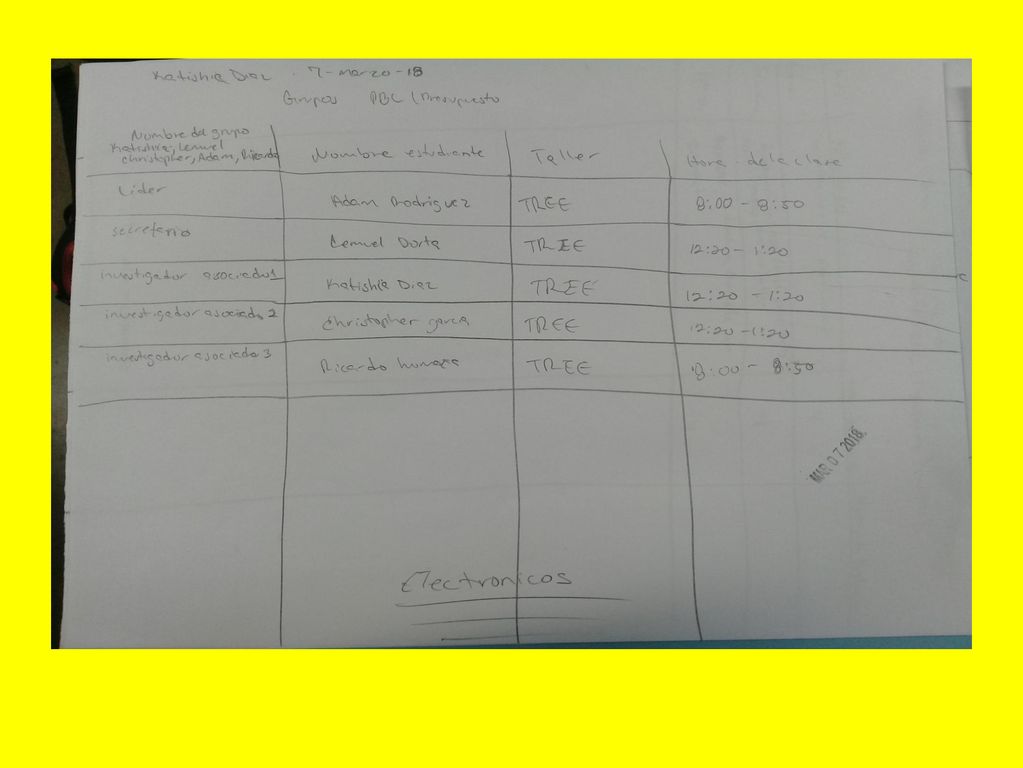 Katishia Diaz . 7-marzo-18
Grupos PBL / Presupuesto
Nombre del grupo
Katishia, Lemuel
christopher, Adam, Ricardo
Nombre estudiante
Taller
Hora de la clase
Lider
Adam Rodriguez
TREE
8:00 - 8:50
secretario
Lemuel Dorta
TREE
12:20 - 1:20
investigador asociado 1
Katishia Diaz
TREE
12:20 - 1:20
investigador asociado 2
Christopher garcia
TREE
12:20 - 1:20
investigador asociado 3
Ricardo
TREE
8:00 - 8:50
MAR 07 2018
Electronicos